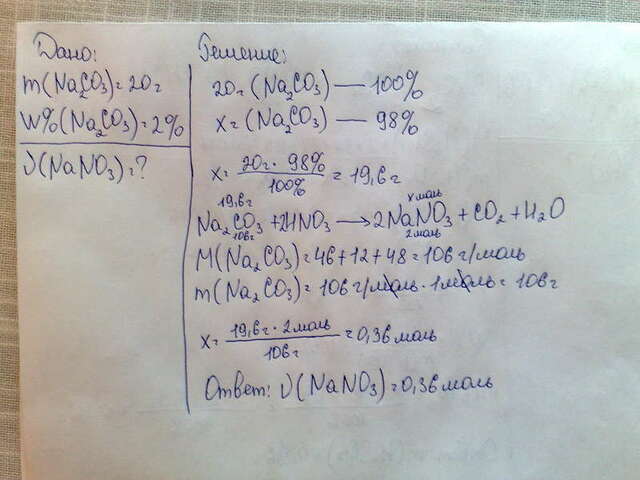 Дано:
m(Na₂CO₃)=20г
W%(Na₂CO₃)=2%
ν(NaNO₃)=?
Решение:
20г (Na₂CO₃) — 100%
x г (Na₂CO₃) — 98%
x = 20г · 98% / 100% = 19,6г
19,6г x моль
Na₂CO₃ + 2HNO₃ → 2NaNO₃ + CO₂ + H₂O
106г 2моль
M(Na₂CO₃)=46+12+48=106 г/моль
m(Na₂CO₃)=106 г/моль · 1моль = 106г
x = 19,6г · 2моль / 106г = 0,36 моль
Ответ: ν(NaNO₃)=0,36 моль